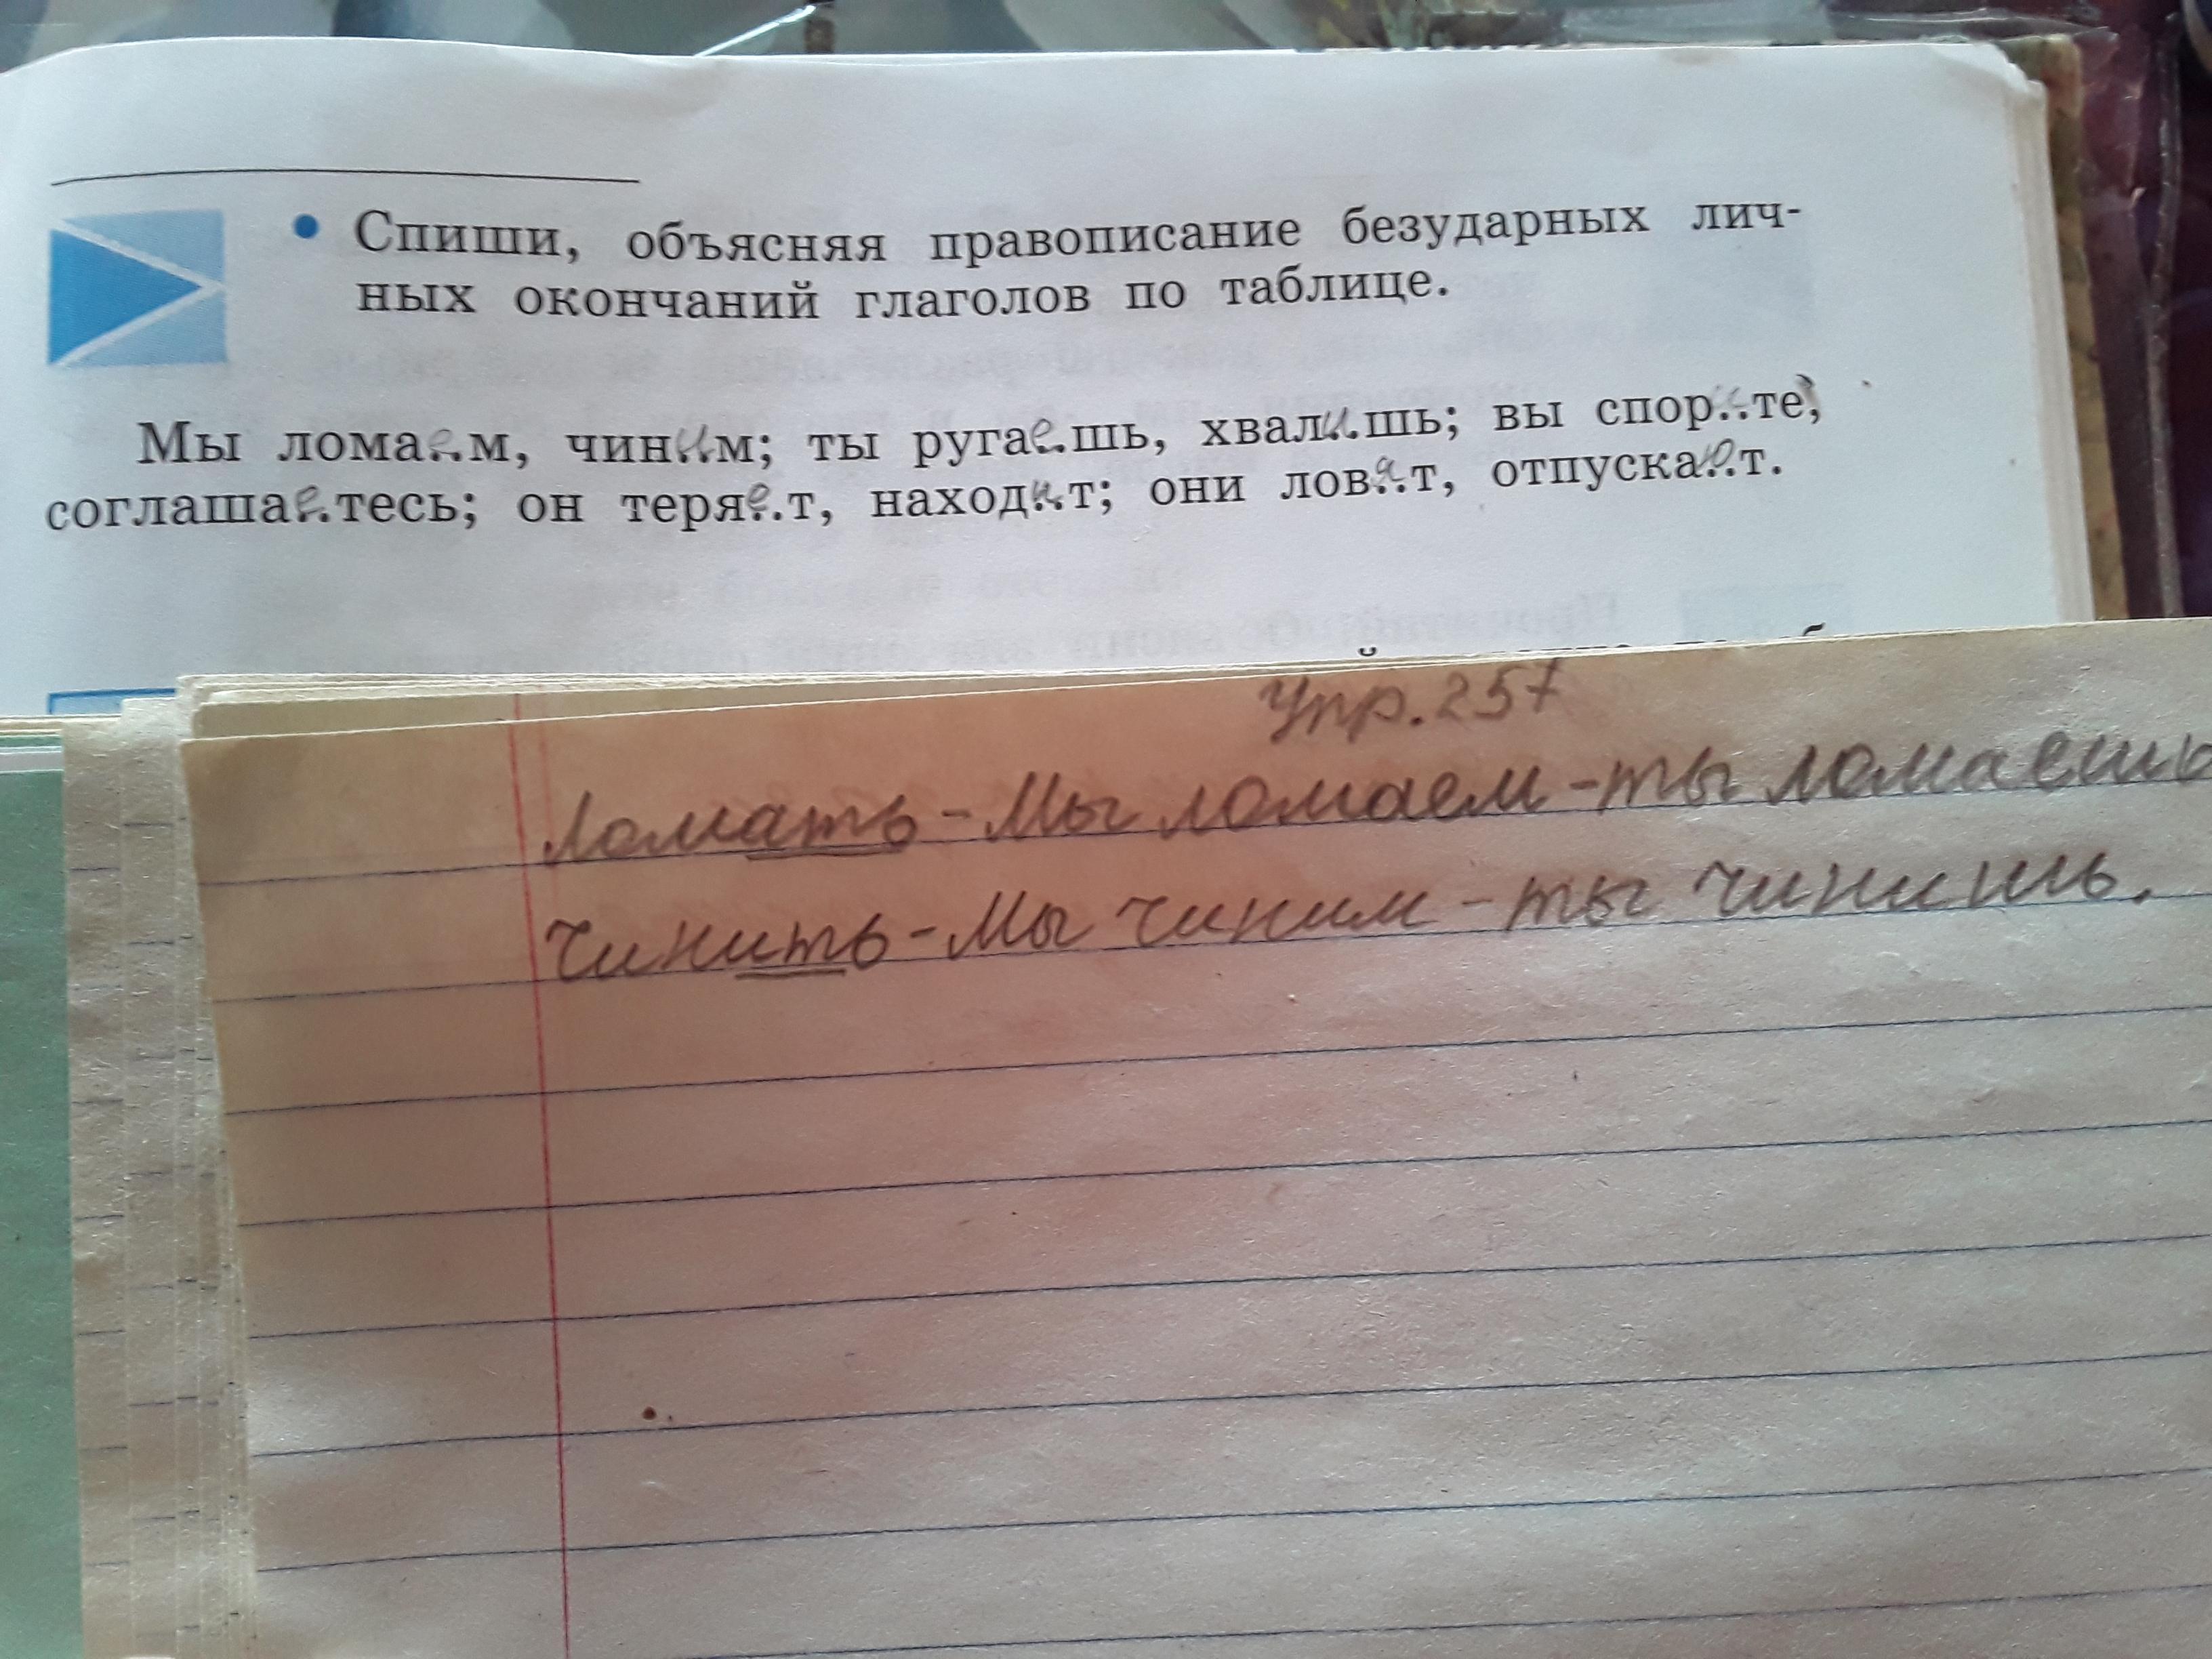 • Спиши, объясняя правописание безударных лич-
ных окончаний глаголов по таблице.
Мы ломае..м, чини..м; ты ругае..шь, хвали..шь; вы спори..те,
соглашае..тесь; он теряе..т, находи..т; они ловя..т, отпускаю..т.
Упр. 257
Ломать - Мы ломаем - ты ломаешь
Чинить - Мы чиним - ты чинишь.